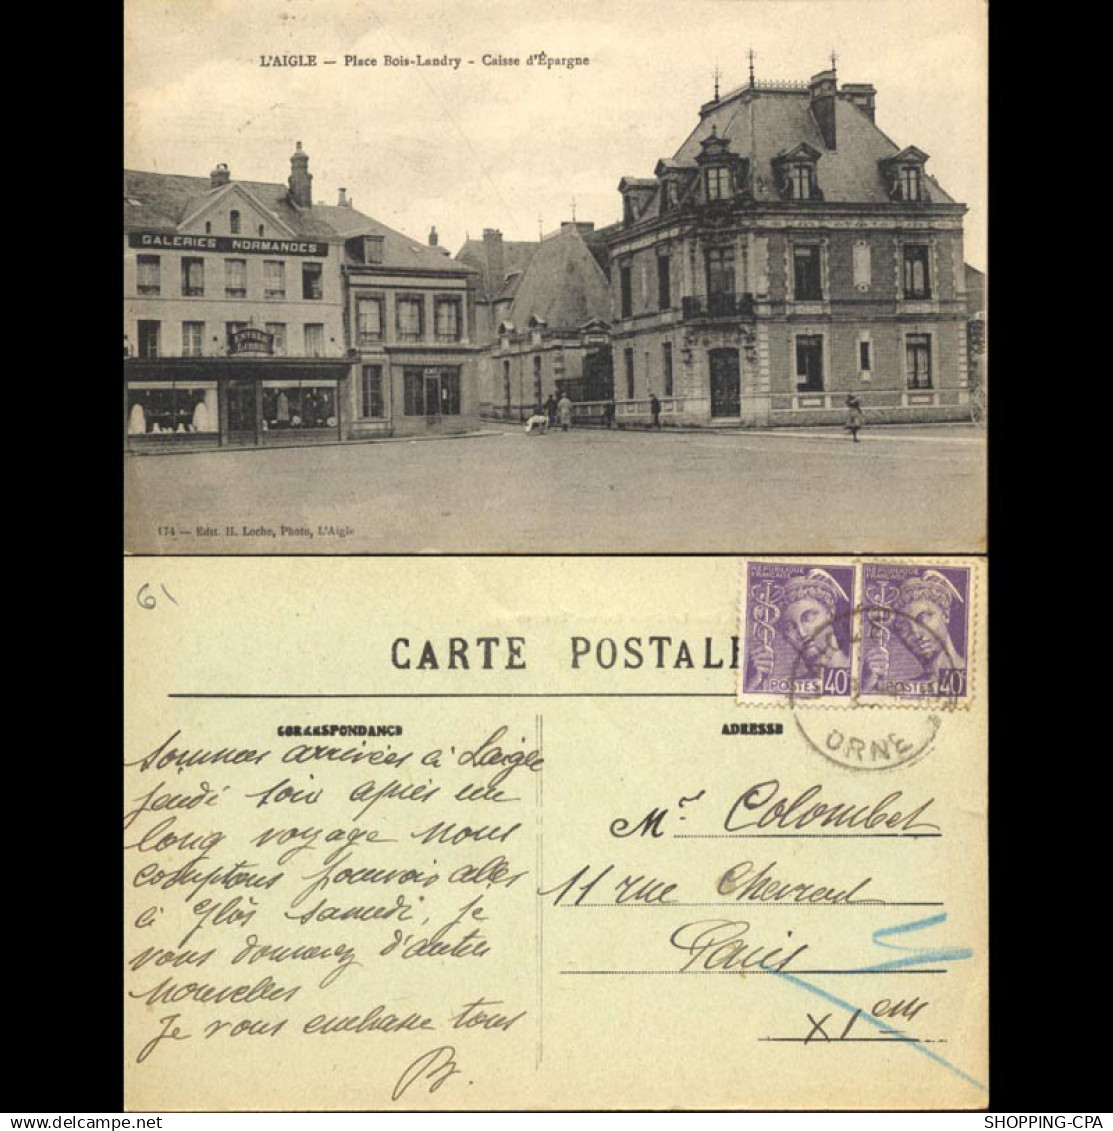 L'AIGLE — Place Bois-Landry - Caisse d'Épargne
GALERIES NORMANDES
ENTRÉE
LIBRE
174 — Edit. H. Loche, Photo, L'Aigle
61
RÉPUBLIQUE FRANÇAISE
POSTES 40
RÉPUBLIQUE FRANÇAISE
POSTES 40
ORNE
CARTE POSTALE
CORRESPONDANCE
ADRESSE
Sommes arrivées à Laigle
jeudi soir après un
long voyage nous
comptons pouvoir aller
à Glos samedi, je
vous donnerez d'autres
nouvelles
Je vous embrasse tous
Mr. Colombet
11 rue Chevreul
Paris
XIem
SHOPPING-CPA